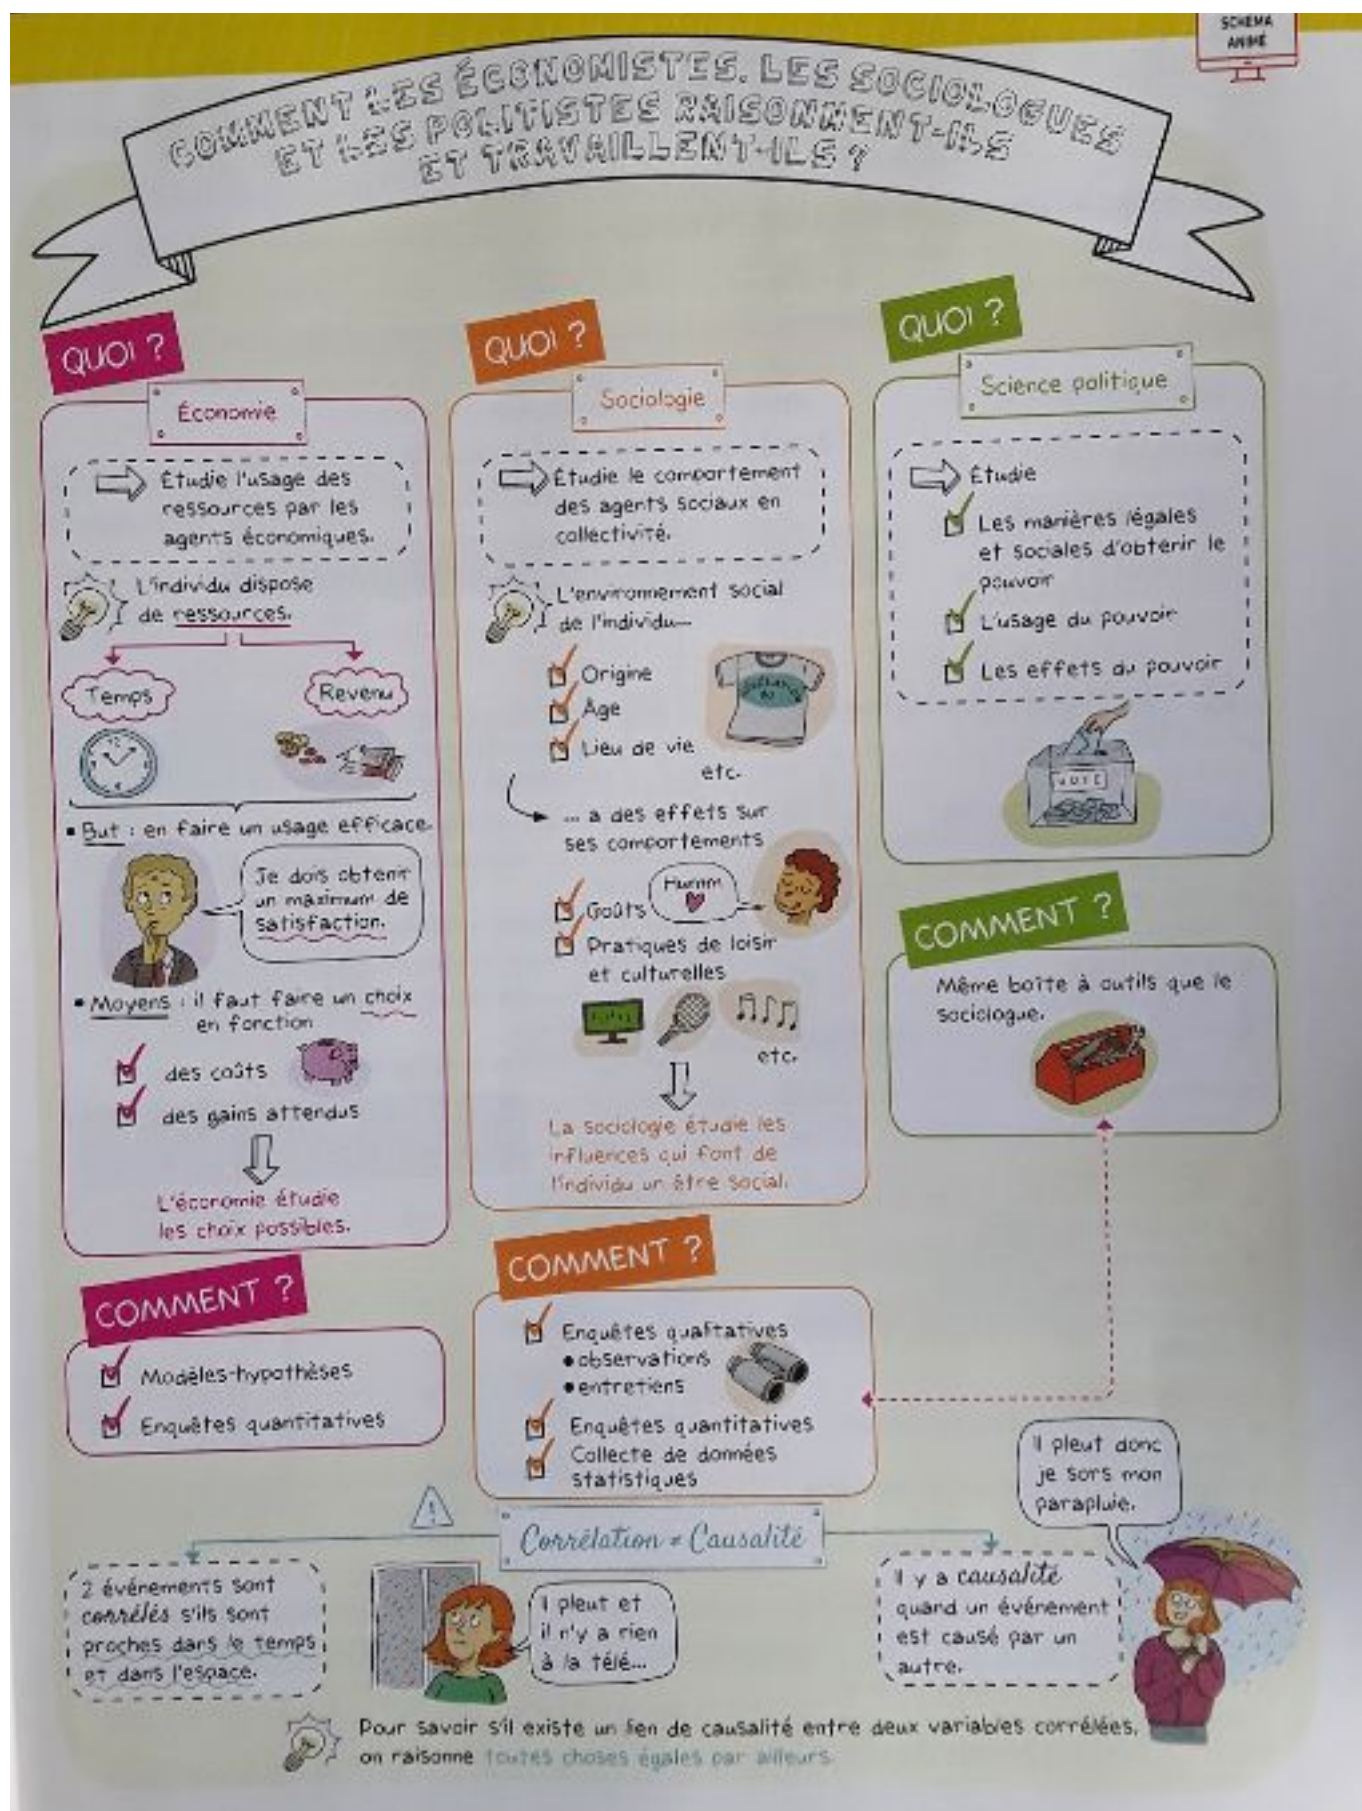 SCHÉMA
ANIMÉ
COMMENT LES ÉCONOMISTES, LES SOCIOLOGUES
ET LES POLITISTES RAISONNENT-ILS
ET TRAVAILLENT-ILS ?
QUOI ?
Économie
Étudie l'usage des
ressources par les
agents économiques.
L'individu dispose
de ressources.
Temps
Revenu
• But : en faire un usage efficace.
Je dois obtenir
un maximum de
satisfaction.
• Moyens : il faut faire un choix
en fonction
des coûts
des gains attendus
L'économie étudie
les choix possibles.
COMMENT ?
Modèles-hypothèses
Enquêtes quantitatives
QUOI ?
Sociologie
Étudie le comportement
des agents sociaux en
collectivité.
L'environnement social
de l'individu...
Origine
Âge
Lieu de vie
etc.
... a des effets sur
ses comportements
Goûts
Humm
Pratiques de loisir
et culturelles
etc.
La sociologie étudie les
influences qui font de
l'individu un être social.
COMMENT ?
Enquêtes qualitatives
• observations
• entretiens
Enquêtes quantitatives
Collecte de données
statistiques
QUOI ?
Science politique
Étudie
Les manières légales
et sociales d'obtenir le
pouvoir
L'usage du pouvoir
Les effets du pouvoir
VOTE
COMMENT ?
Même boîte à outils que le
sociologue.
Corrélation ≠ Causalité
2 événements sont
corrélés s'ils sont
proches dans le temps
et dans l'espace.
Il pleut et
il n'y a rien
à la télé...
Il y a causalité
quand un événement
est causé par un
autre.
Il pleut donc
je sors mon
parapluie.
Pour savoir s'il existe un lien de causalité entre deux variables corrélées,
on raisonne toutes choses égales par ailleurs.